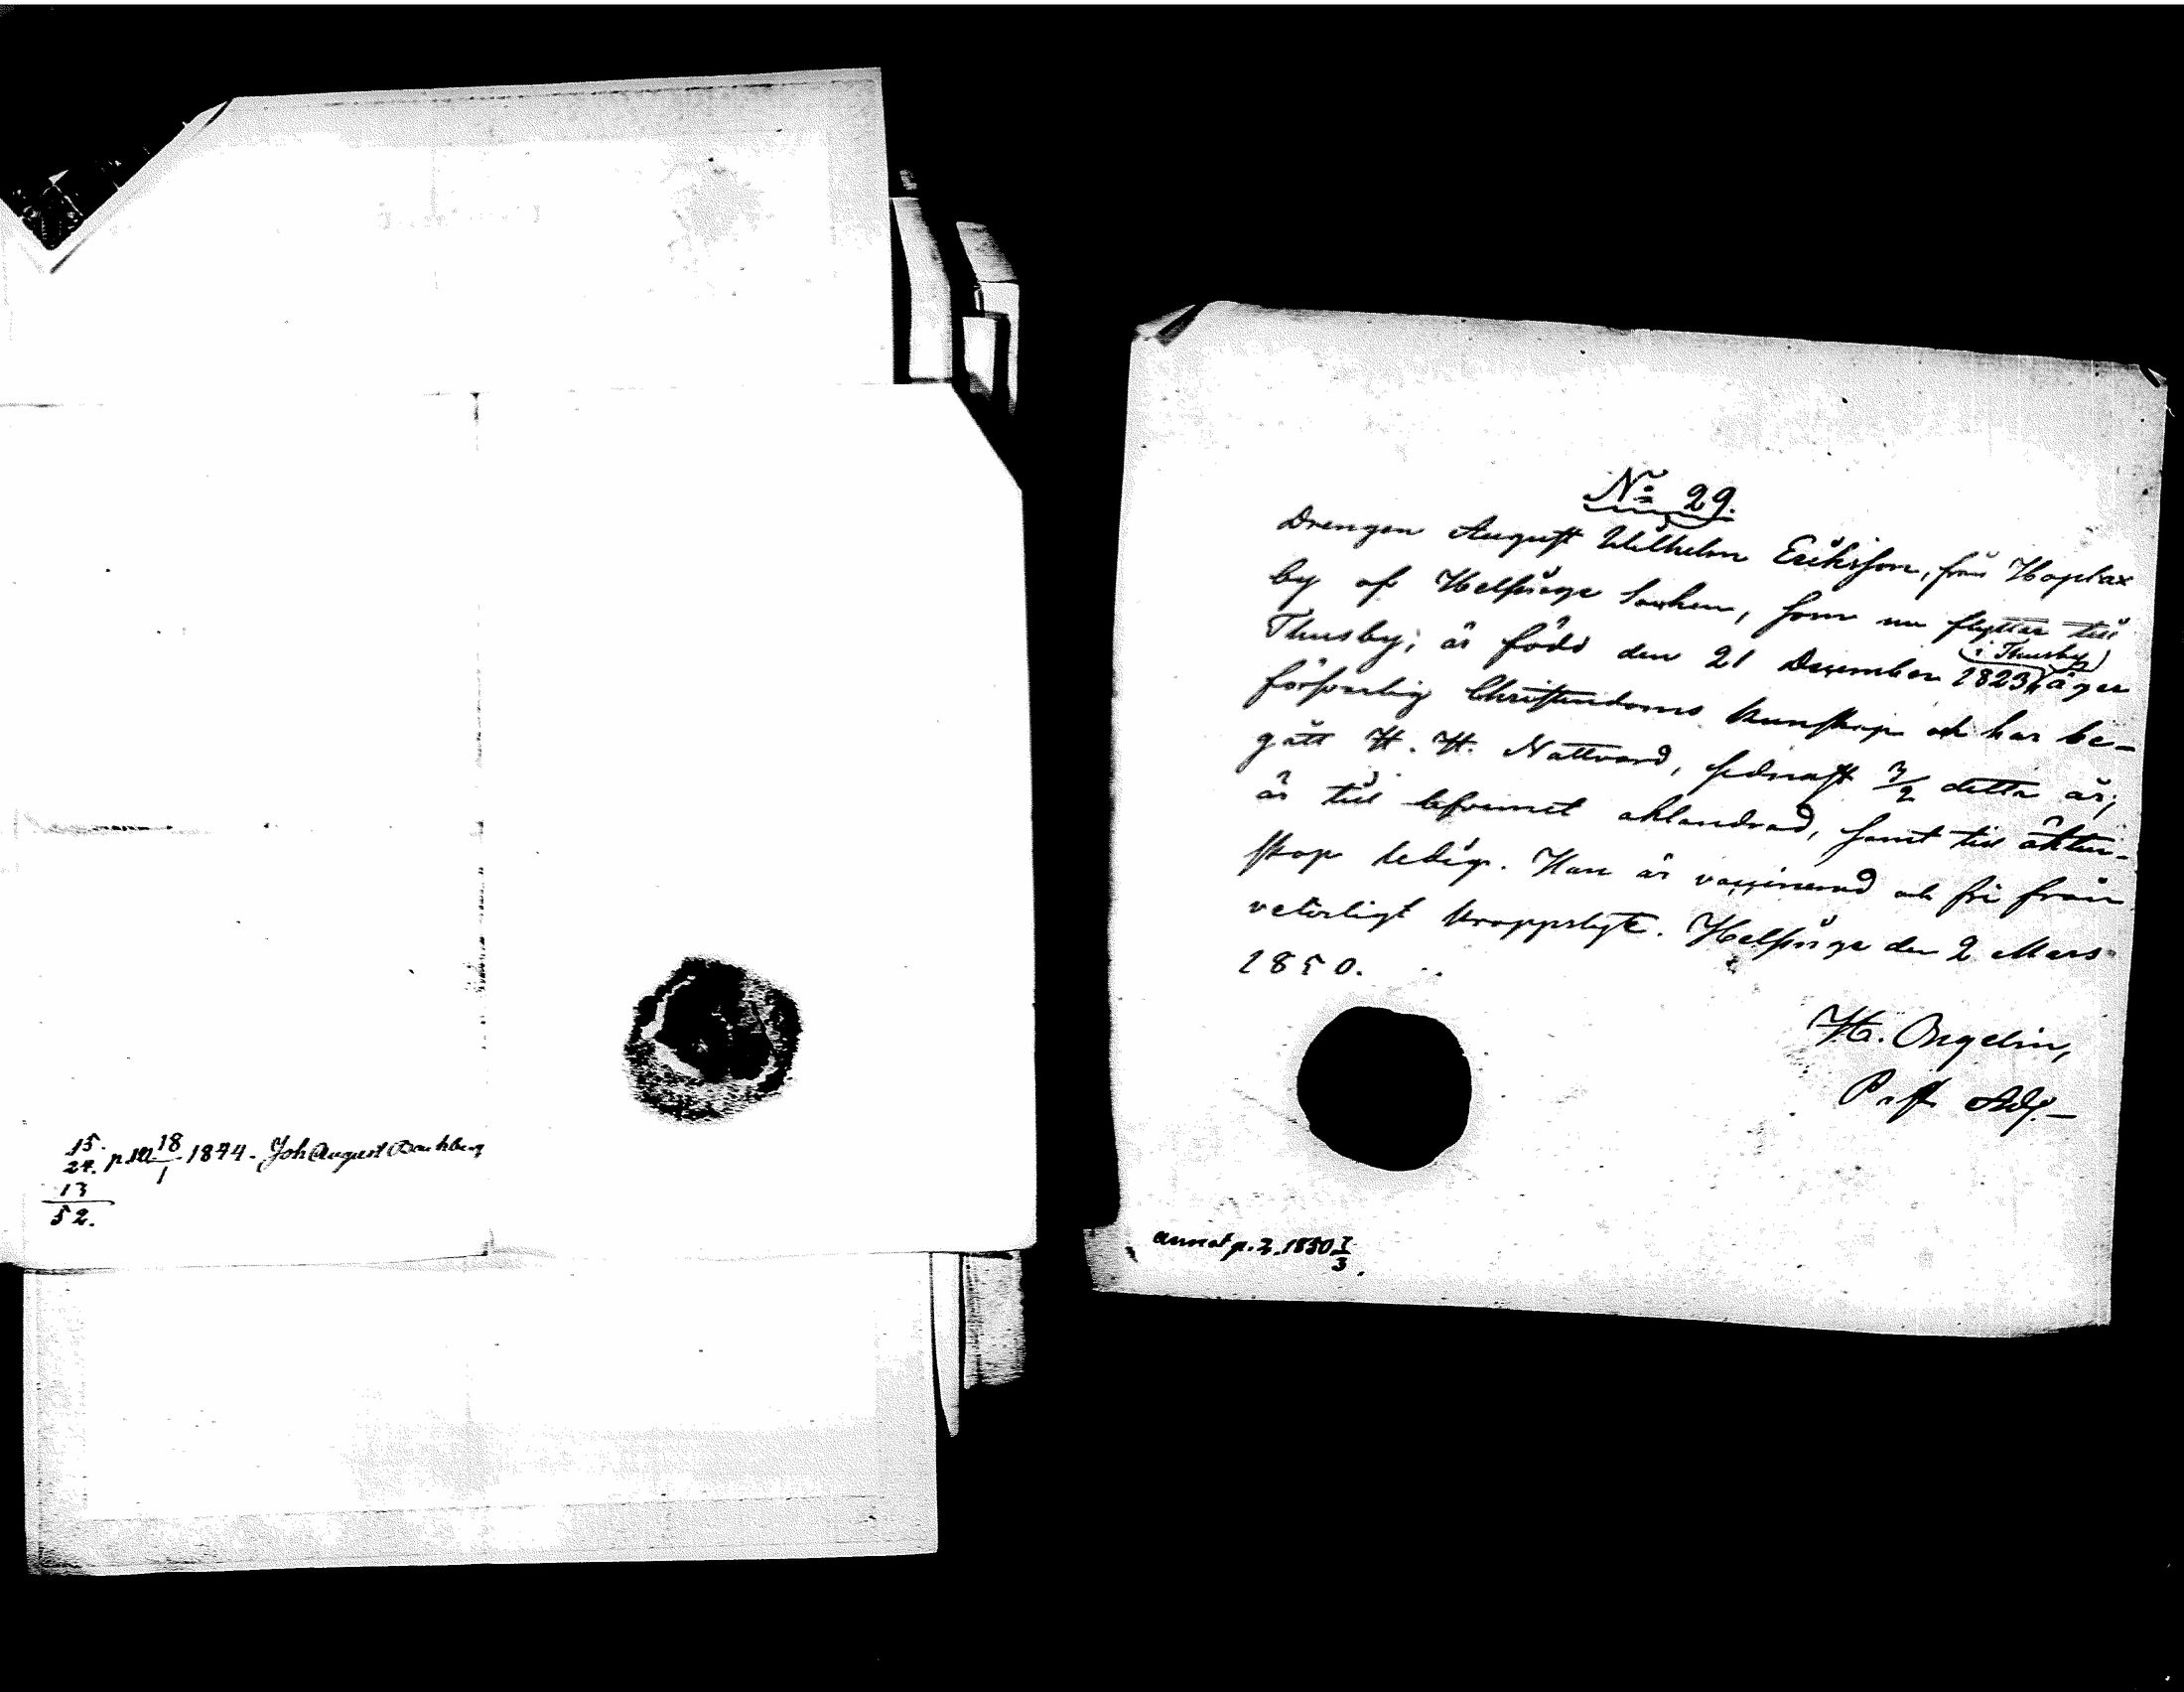 15.
27. p. 18/1 1874. Joh August
13
52.
No 29.
Drengen August Wilhelm Eriksson, från Hoplax
by af Helsinge Socken, som nu flyttar till
Thusby; är född den 21 December 1823, (i Thusby) äger
försvarlig Christendoms kunskap och har be-
gått H. H. Nattvard, sednast 3/2 detta år;
är till lefvernet oklandrad, samt till äkten-
skap ledig. Han är vaccinerad och fri från
veterligt kroppslyte. Helsinge den 2 Mars
1850.
H. Ongelin,
Past. Adj.
annot p. 2. 1850 7/3.